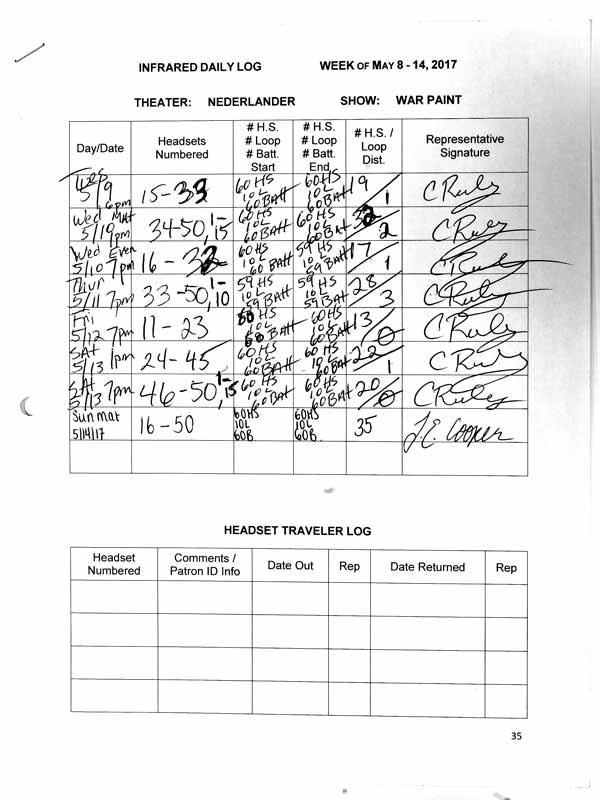 INFRARED DAILY LOG WEEK OF MAY 8 - 14, 2017
THEATER: NEDERLANDER SHOW: WAR PAINT
Day/Date
Headsets
Numbered
# H.S.
# Loop
# Batt.
Start
# H.S.
# Loop
# Batt.
End
# H.S. /
Loop
Dist.
Representative
Signature
Tues
5/9
6pm
15-33
60 HS
10 L
60 BATT
60 HS
10 L
60 BATT
19/1
CRuly
Wed MAT
5/19pm
34-50, 1-15
60 HS
10 L
60 BATT
60 HS
10 L
60 BATT
32/2
CRuly
Wed Even
5/10 7pm
16-32
60 HS
10 L
60 BATT
59 HS
10 L
59 BATT
17/1
CRuly
Thur
5/11 7pm
33-50, 1-10
59 HS
10 L
59 BATT
59 HS
10 L
59 BATT
28/3
CRuly
Fri
5/12 7pm
11-23
HS
10 L
60 BATT
60 HS
10 L
60 BATT
13/0
CRuly
SAT
5/13 1pm
24-45
60 HS
10 L
60 BATT
60 HS
10 L
60 BATT
22/1
CRuly
SAT
5/13 7pm
46-50, 1-15
60 HS
10 L
60 BATT
60 HS
10 L
60 BATT
20/0
CRuly
Sun mat
5/14/17
16-50
60HS
10L
60B
60HS
10L
60B
35
J.E. Cooper
HEADSET TRAVELER LOG
Headset
Numbered
Comments /
Patron ID Info
Date Out
Rep
Date Returned
Rep
35